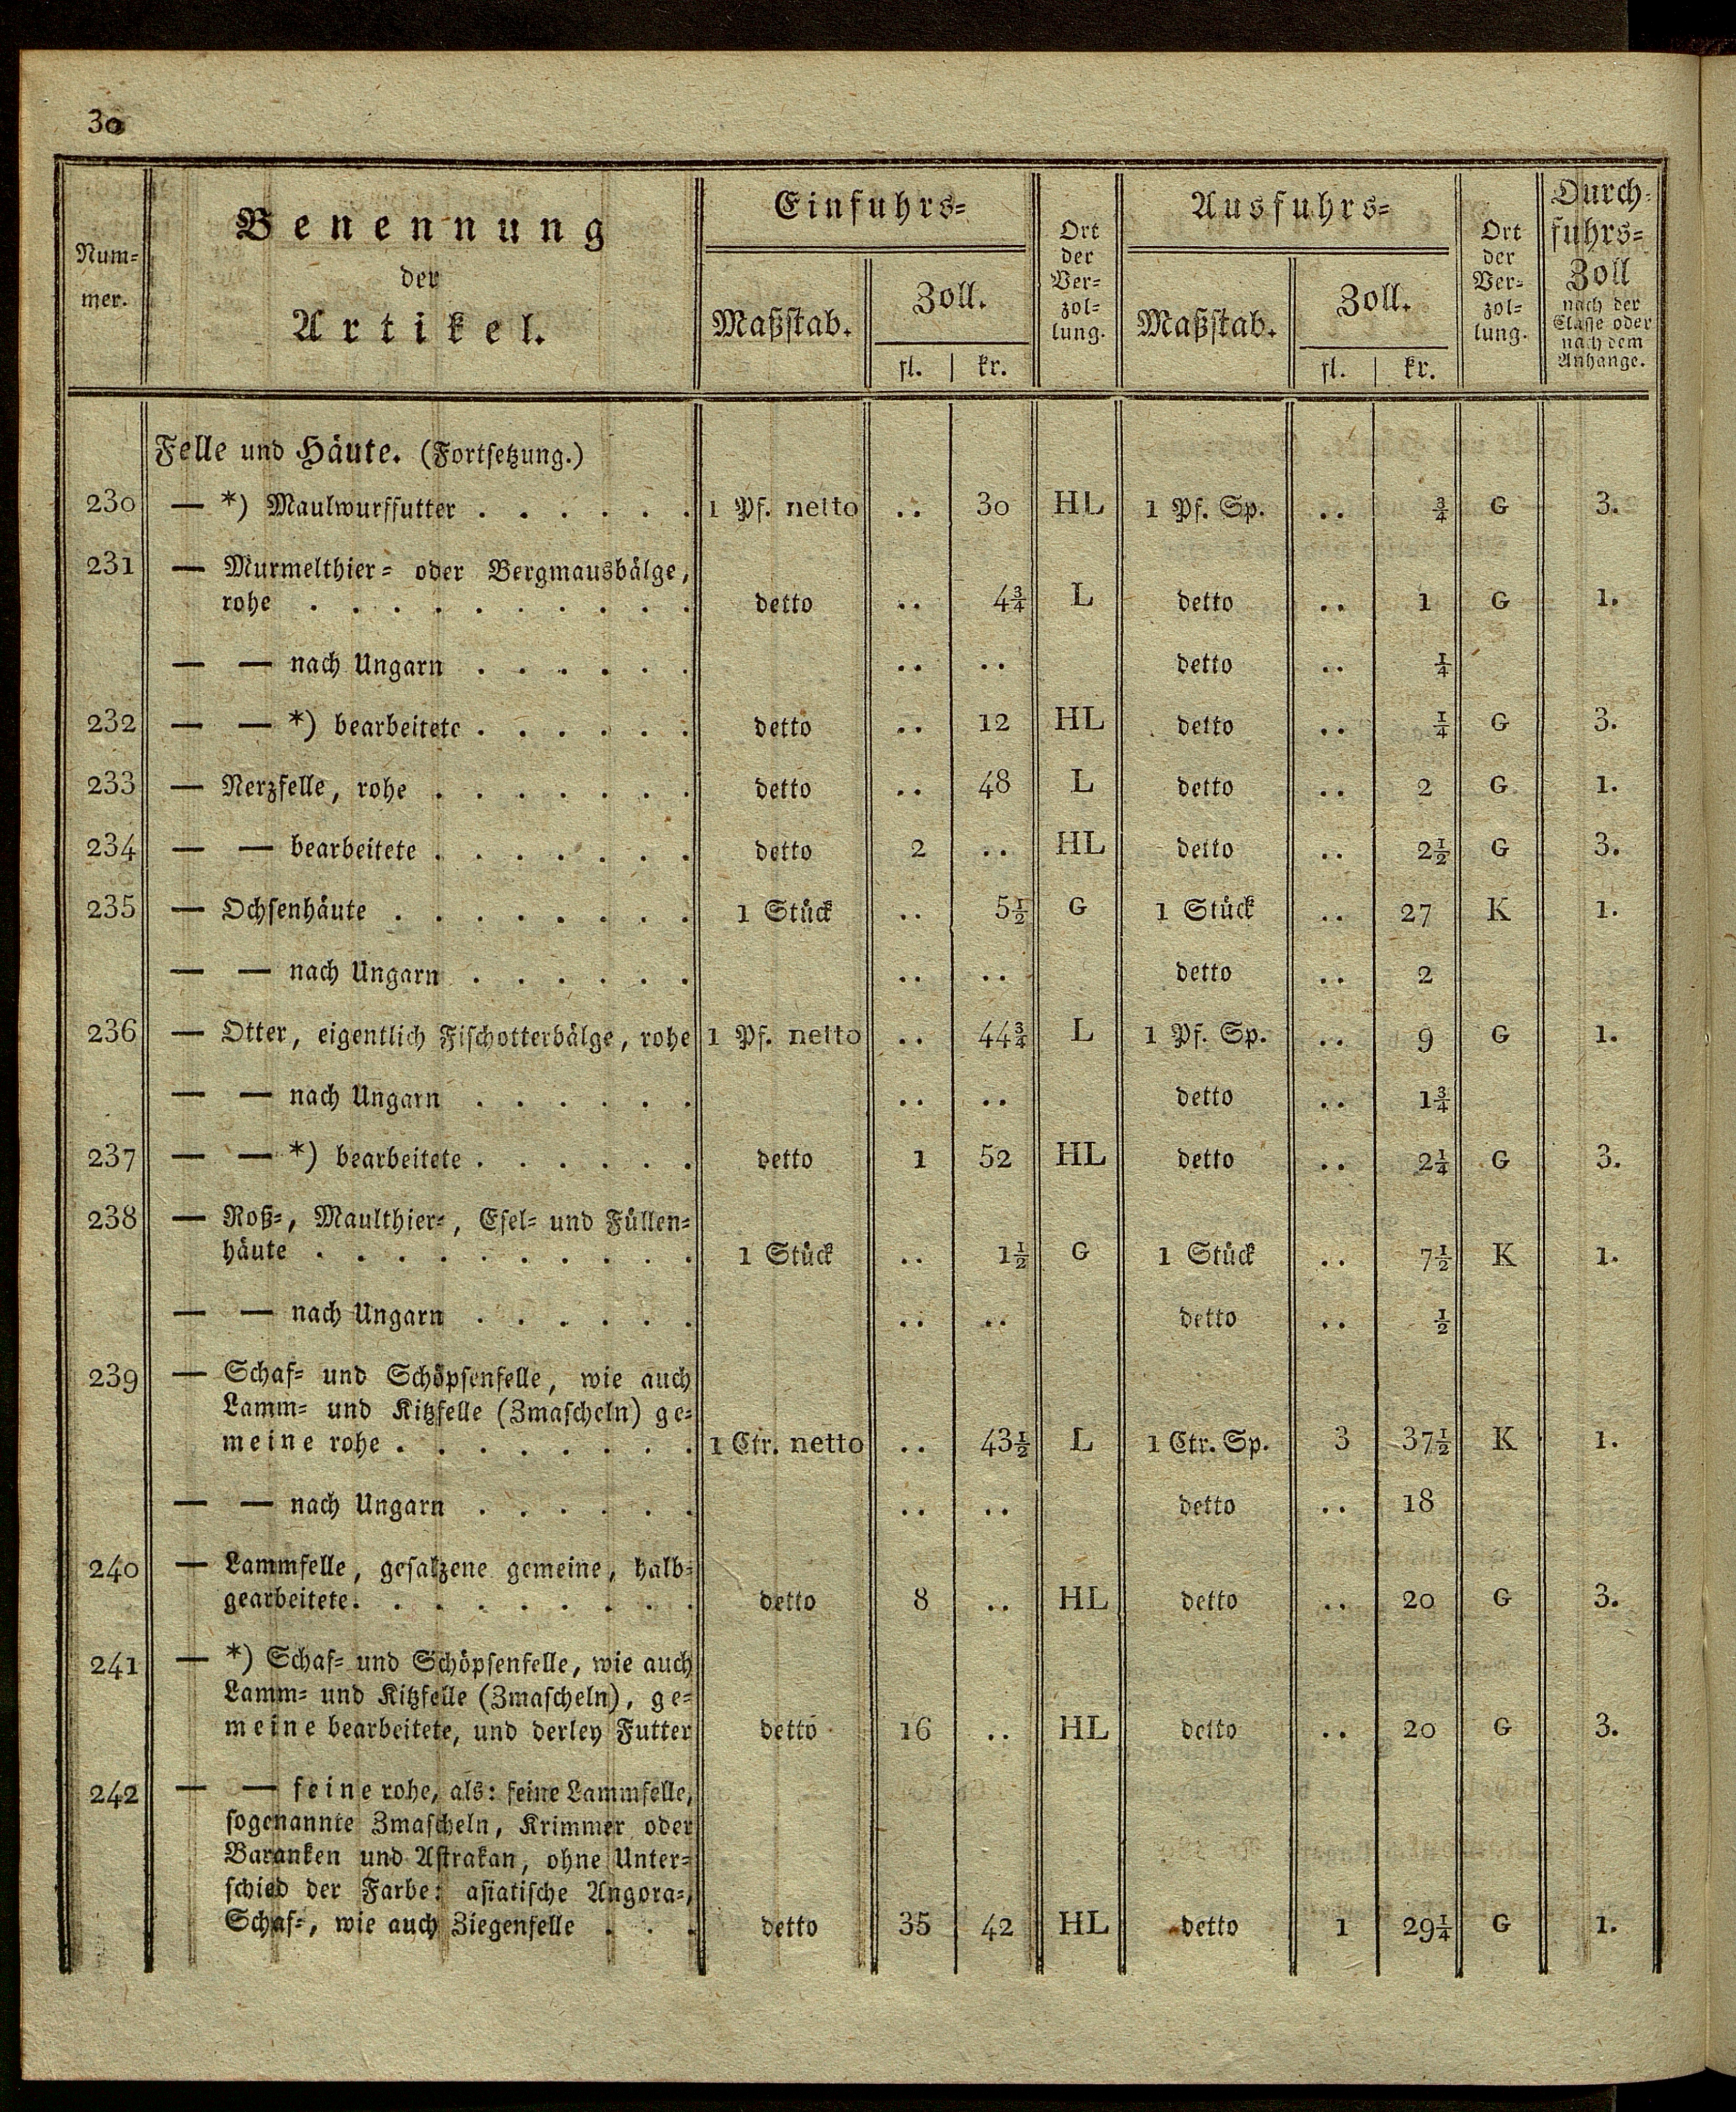 30
Num-
mer.
Benennung
der
Artikel.
Einfuhrs-
Maßstab.
Zoll.
fl. | kr.
Ort
der
Ver-
zol-
lung.
Ausfuhrs-
Maßstab.
Zoll.
fl. | kr.
Ort
der
Ver-
zol-
lung.
Durch-
fuhrs-
Zoll
nach der
Classe oder
nach dem
Anhange.
Felle und Häute. (Fortsetzung.)
230 — *) Maulwurffutter . . . . . . 1 Pf. netto .. 30 HL 1 Pf. Sp. .. ¾ G 3.
231 — Murmelthier- oder Bergmausbälge,
rohe . . . . . . . . . . detto .. 4¾ L detto .. 1 G 1.
— — nach Ungarn . . . . . . .. .. detto .. ¼
232 — — *) bearbeitete . . . . . . detto .. 12 HL detto .. ¼ G 3.
233 — Nerzfelle, rohe . . . . . . . detto .. 48 L detto .. 2 G 1.
234 — — bearbeitete . . . . . . . detto 2 .. HL detto .. 2½ G 3.
235 — Ochsenhäute . . . . . . . . 1 Stück .. 5½ G 1 Stück .. 27 K 1.
— — nach Ungarn . . . . . . .. .. detto .. 2
236 — Otter, eigentlich Fischotterbälge, rohe 1 Pf. netto .. 44¾ L 1 Pf. Sp. .. 9 G 1.
— — nach Ungarn . . . . . . .. .. detto .. 1¾
237 — — *) bearbeitete . . . . . . detto 1 52 HL detto .. 2¼ G 3.
238 — Roß-, Maulthier-, Esel- und Füllen-
häute . . . . . . . . . . 1 Stück .. 1½ G 1 Stück .. 7½ K 1.
— — nach Ungarn . . . . . . .. .. detto .. ½
239 — Schaf- und Schöpsenfelle, wie auch
Lamm- und Kitzfelle (Zmascheln) ge-
meine rohe . . . . . . . . 1 Ctr. netto .. 43½ L 1 Ctr. Sp. 3 37½ K 1.
— — nach Ungarn . . . . . . .. .. detto .. 18
240 — Lammfelle, gesalzene gemeine, halb-
gearbeitete. . . . . . . . . detto 8 .. HL detto .. 20 G 3.
241 — *) Schaf- und Schöpsenfelle, wie auch
Lamm- und Kitzfelle (Zmascheln), ge-
meine bearbeitete, und derley Futter detto 16 .. HL detto .. 20 G 3.
242 — — feine rohe, als: feine Lammfelle,
sogenannte Zmascheln, Krimmer oder
Baranken und Astrakan, ohne Unter-
schied der Farbe; asiatische Angora-,
Schaf-, wie auch Ziegenfelle . . . detto 35 42 HL detto 1 29¼ G 1.